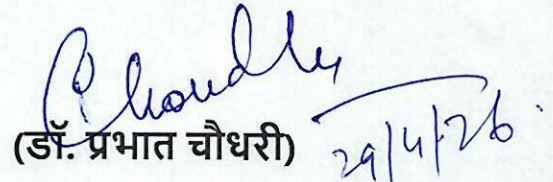 PChoudhry
(डॉ. प्रभात चौधरी)
29/4/26